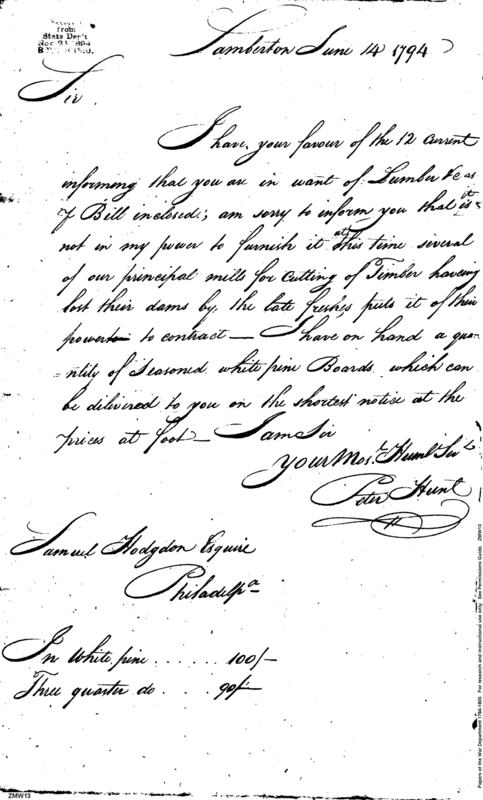 from
State Dep't
Lamberton June 14 1794
Sir
I have your favour of the 12 current
informing that you are in want of Lumber &c as
Bill inclosed; am sorry to inform you that it is
not in my power to furnish it at this time several
of our principal mills for cutting of Timber having
lost their dams by the late freshes puts it of their
power to contract — I have on hand a qua-
-ntity of Seasoned white pine Boards which can
be delivered to you on the shortest notice at the
prices at foot — I am Sir
Your Mos.t Huml Ser.t
Peter Hunt
Samuel Hodgdon Esquire
Philadelp.a
In White pine ...... 100/-
Three quarter do ... 90/-
ZMW13
Papers of the War Department 1784-1800. For research and instructional use only. See Permissions Guide. ZMW13